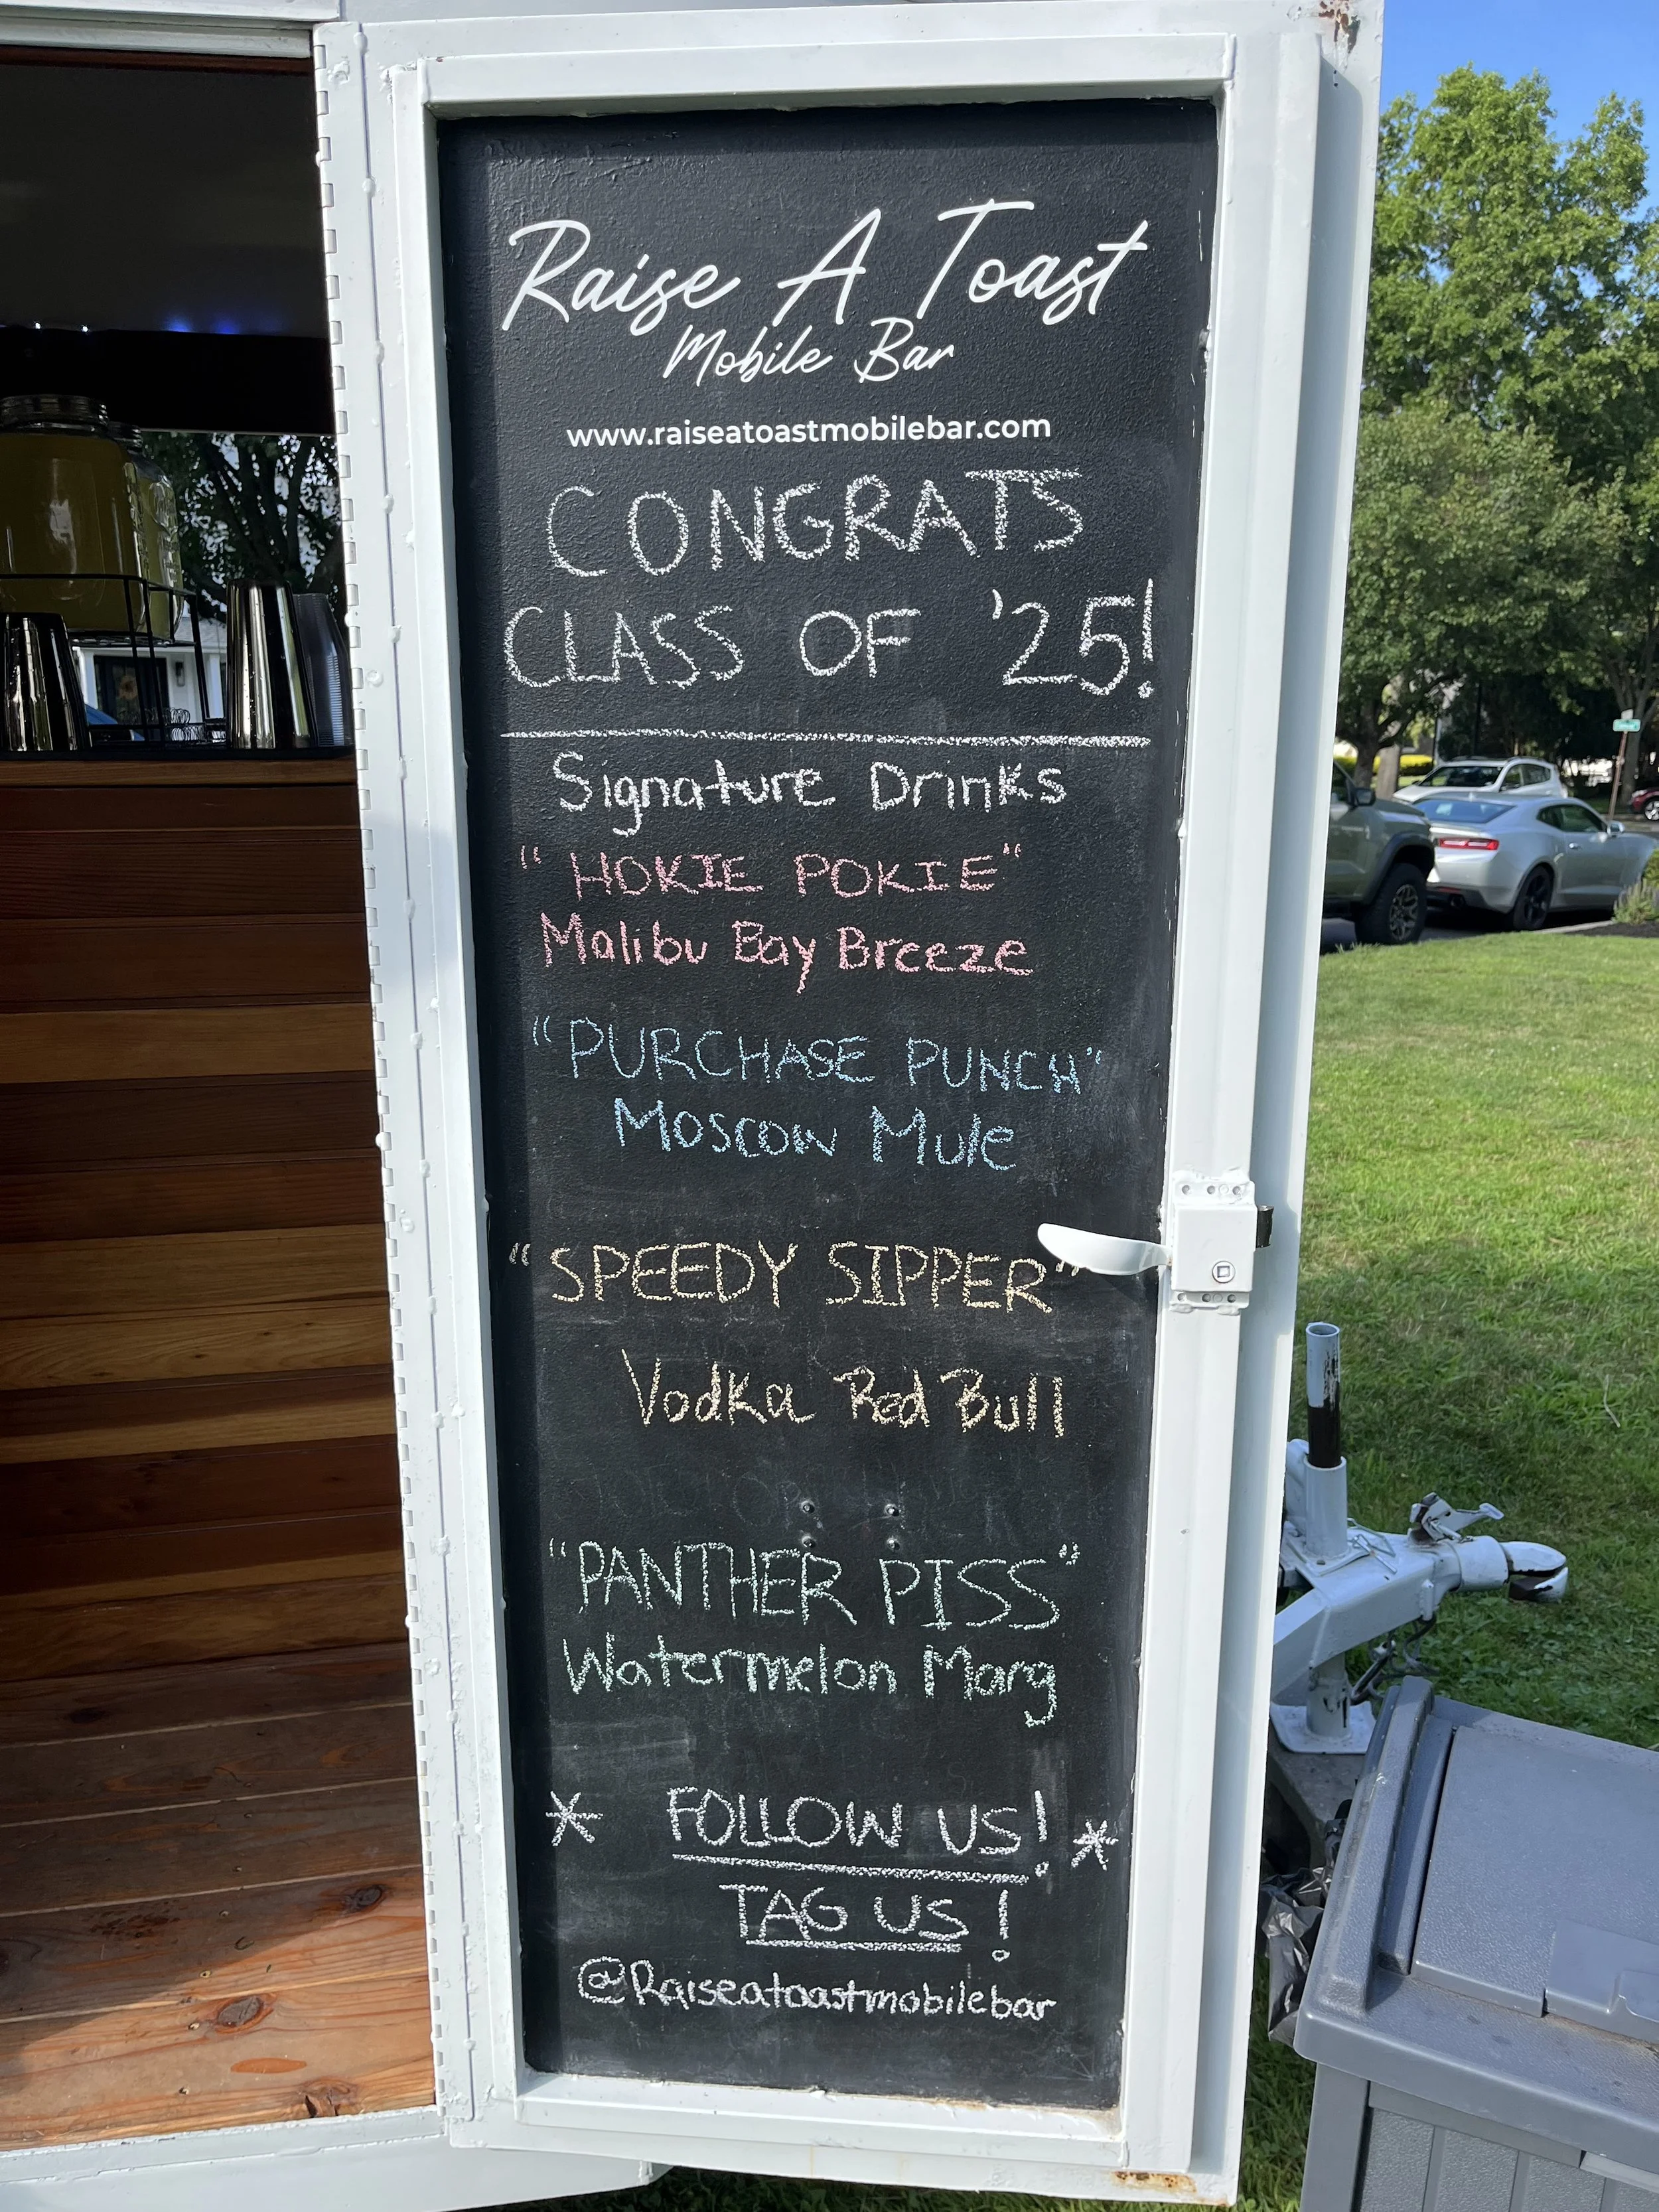 Raise A Toast
Mobile Bar
www.raiseatoastmobilebar.com
CONGRATS
CLASS OF '25!
Signature Drinks
"HOKIE POKIE"
Malibu Bay Breeze
"PURCHASE PUNCH"
Moscow Mule
"SPEEDY SIPPER"
Vodka Red Bull
"PANTHER PISS"
Watermelon Marg
* FOLLOW US! *
TAG US!
@Raiseatoastmobilebar